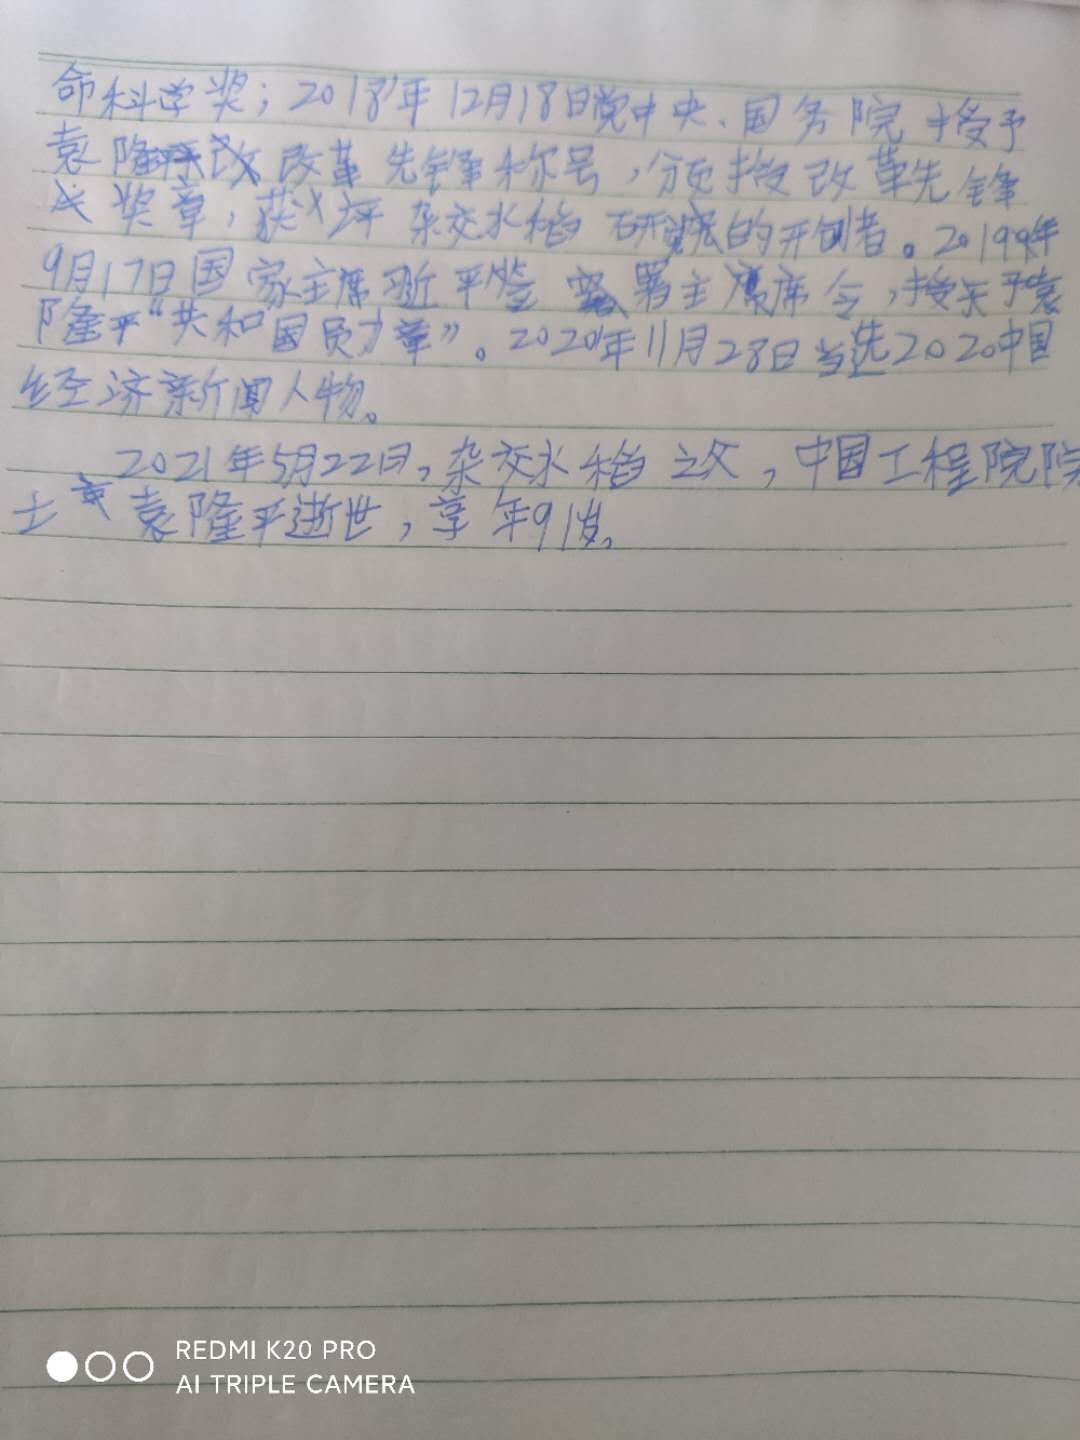 命科学奖；2018年12月18日党中央、国务院授予
袁隆平改革先锋称号，颁授改革先锋
奖章，获评杂交水稻研究的开创者。2019年
9月17日国家主席习近平签署主席令，授予袁
隆平“共和国勋章”。2020年11月28日当选2020中国
经济新闻人物。
2021年5月22日，杂交水稻之父，中国工程院院
士袁隆平逝世，享年91岁。
REDMI K20 PRO
AI TRIPLE CAMERA